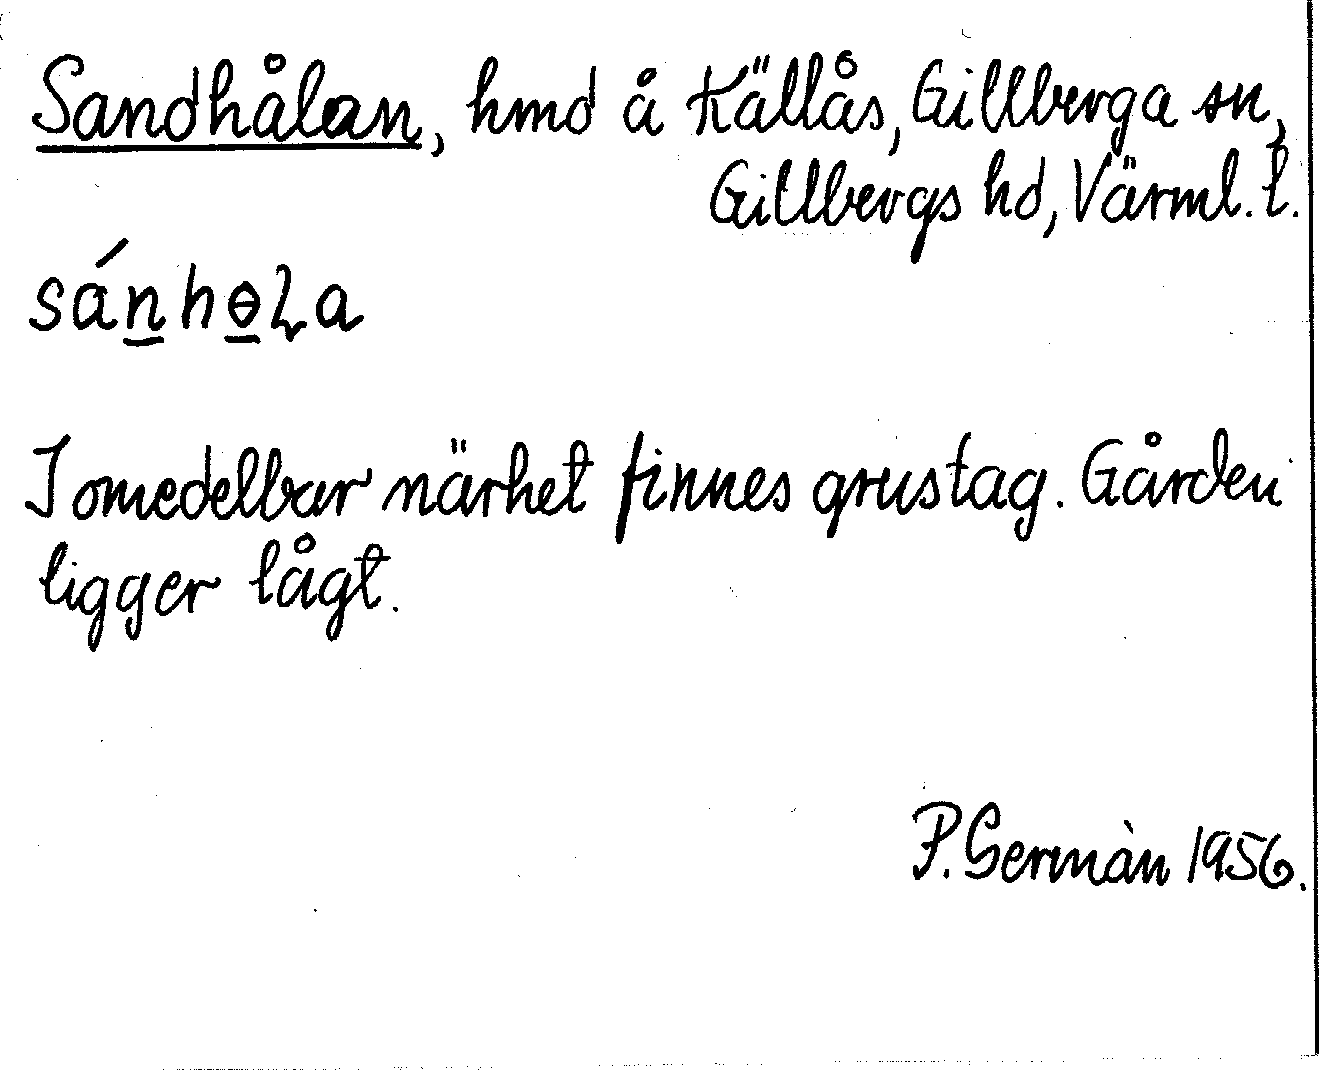 Sandhålan, hmd å Källås, Gillberga sn,
Gillbergs hd, Värml. l.
sán̲hɵ̲ɭa
I omedelbar närhet finnes grustag. Gården
ligger lågt.
P. Germàn 1956.